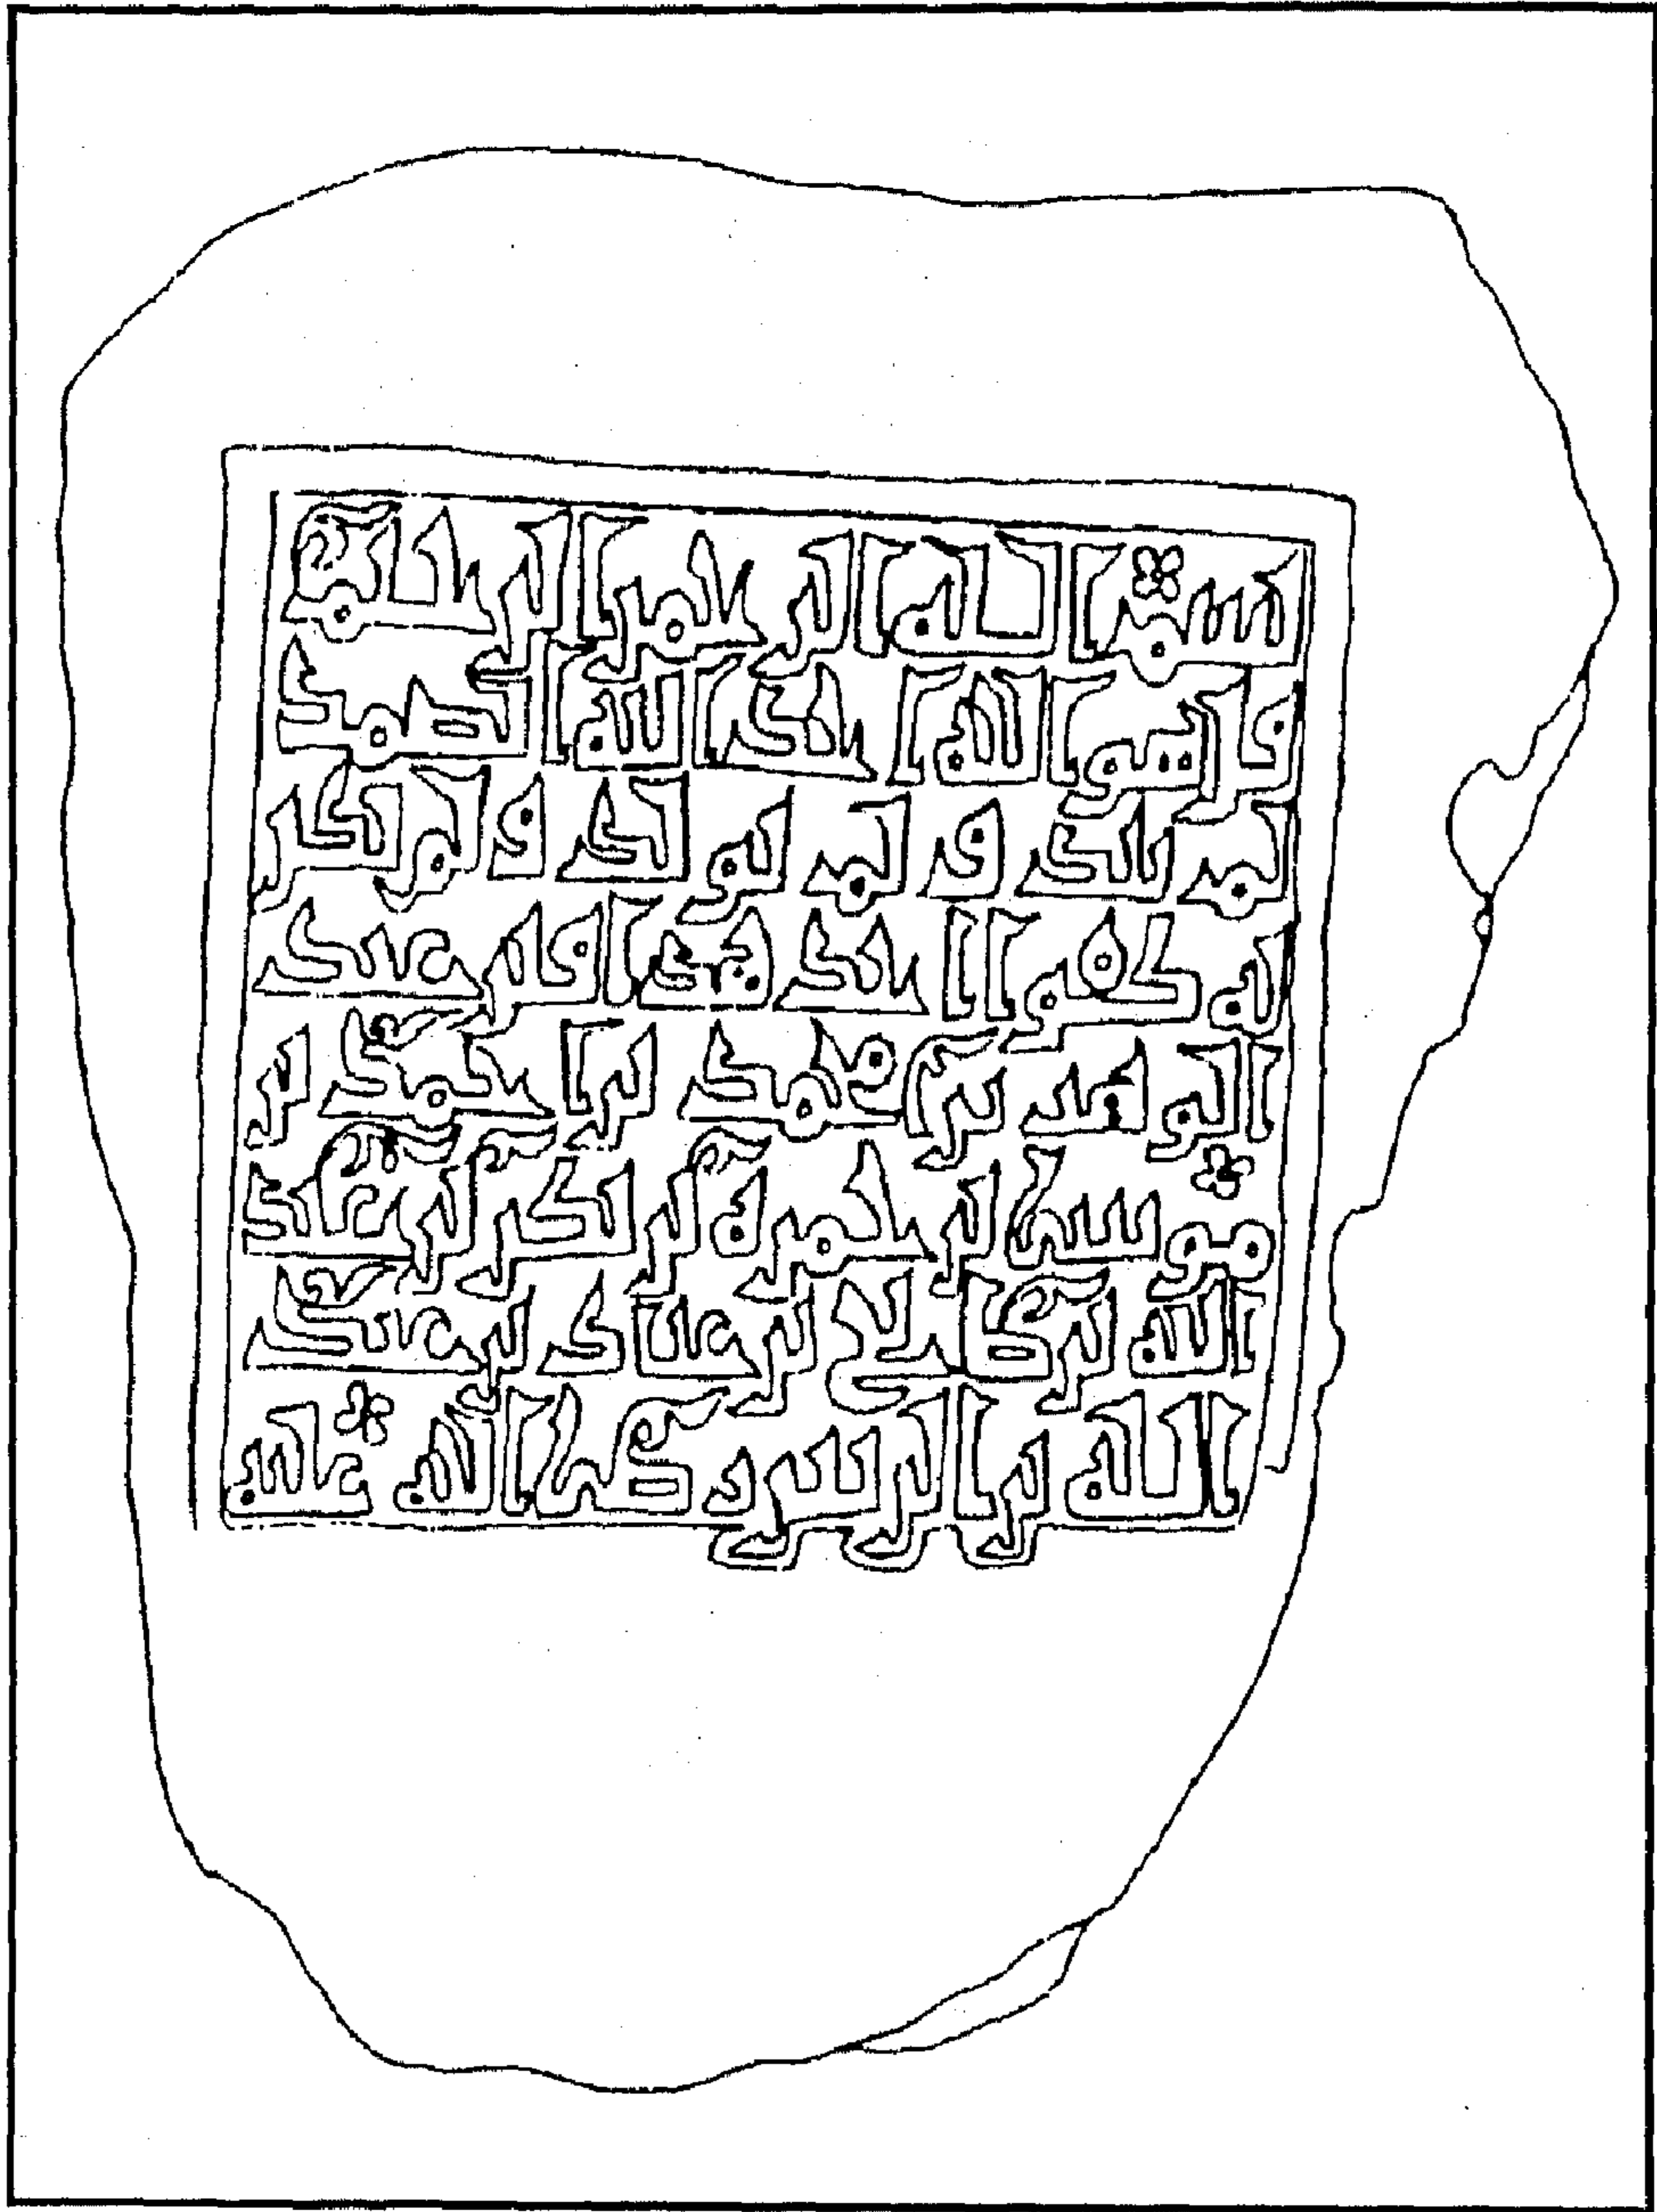 بسم الله الرحمن الرحيم
قل هو الله احد الله الصمد
لم يلد و لم يولد و لم يكن
له كفوا احد هذا قبر عبد
الواحد بن محمد بن احمد بن
موسى بن حمزة بن بكر بن عبد
الله بن صالح بن عباد بن عبد
الله بن الزبير صلى الله عليه